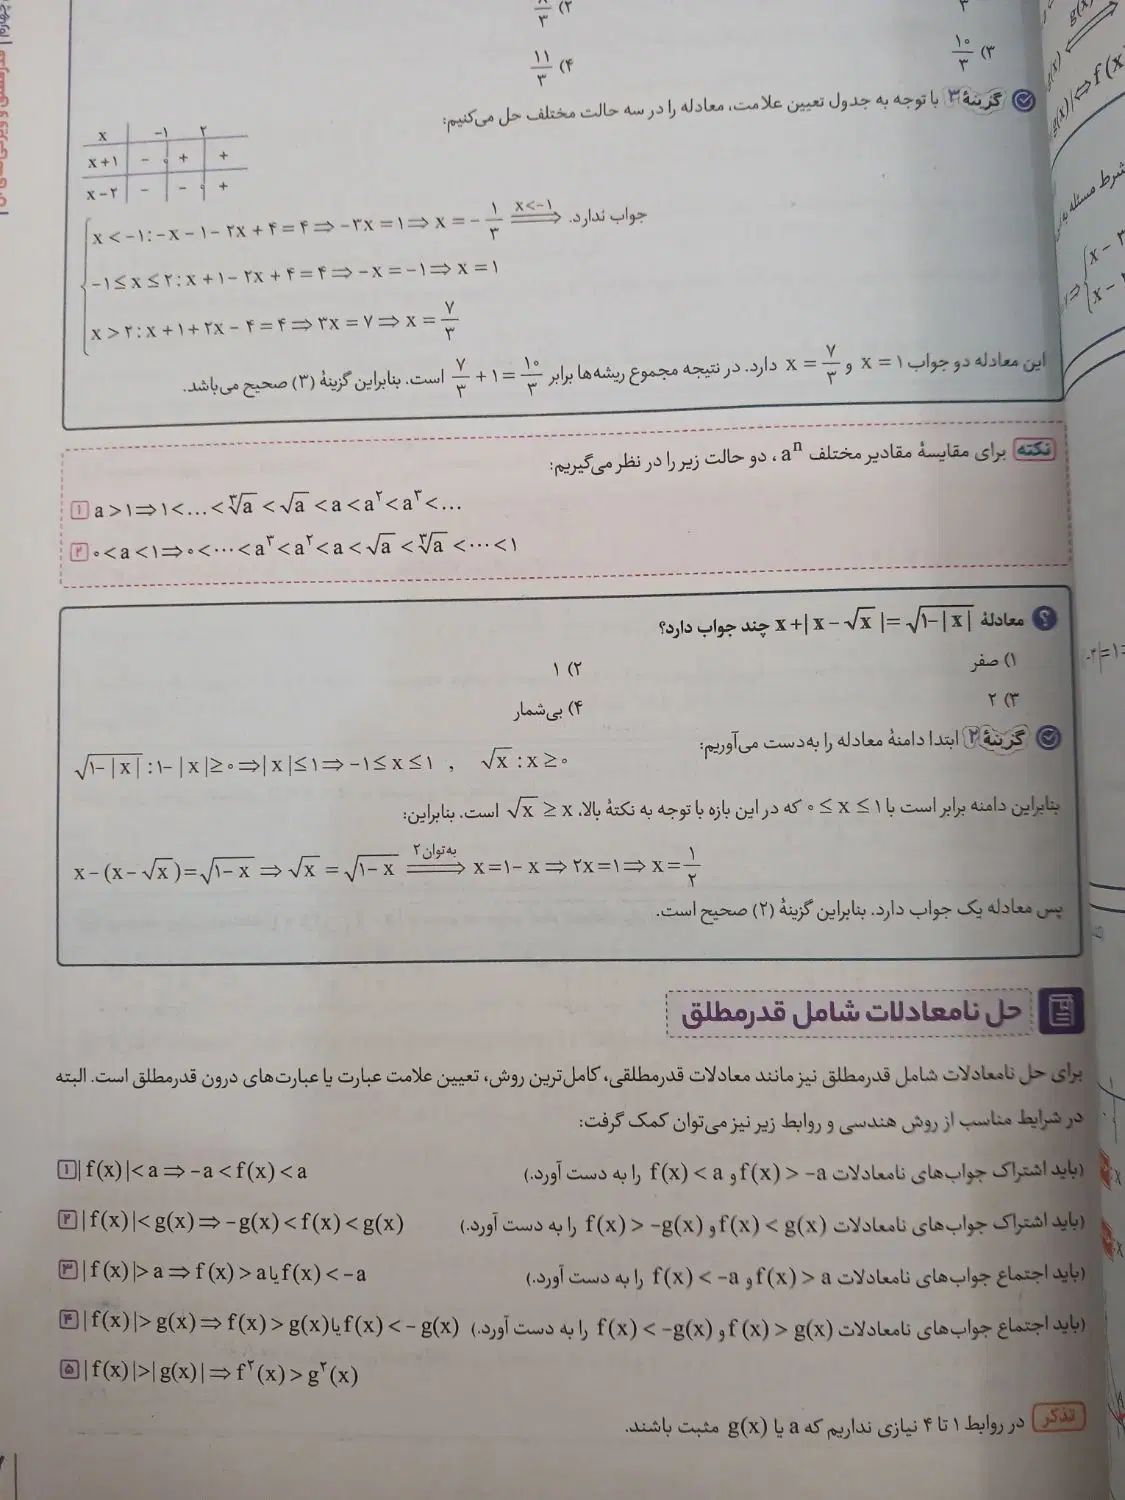 ۳) ۱۰/۳
۴) ۱۱/۳
گزینهٔ ۳ با توجه به جدول تعیین علامت، معادله را در سه حالت مختلف حل می‌کنیم:
x | −۱ | ۲
x+۱ | − | ۰ | + | +
x−۲ | − | − | ۰ | +
x < −۱: −x − ۱ − ۲x + ۴ = ۴ ⇒ −۳x = ۱ ⇒ x = −۱/۳ ⟹ (x<−۱) جواب ندارد.
−۱ ≤ x ≤ ۲: x + ۱ − ۲x + ۴ = ۴ ⇒ −x = −۱ ⇒ x = ۱
x > ۲: x + ۱ + ۲x − ۴ = ۴ ⇒ ۳x = ۷ ⇒ x = ۷/۳
این معادله دو جواب x = ۱ و x = ۷/۳ دارد. در نتیجه مجموع ریشه‌ها برابر ۷/۳ + ۱ = ۱۰/۳ است. بنابراین گزینهٔ (۳) صحیح می‌باشد.
نکته برای مقایسهٔ مقادیر مختلف aⁿ، دو حالت زیر را در نظر می‌گیریم:
۱ a > ۱ ⇒ ۱ < … < ∛a < √a < a < a² < a³ < …
۲ ۰ < a < ۱ ⇒ ۰ < … < a³ < a² < a < √a < ∛a < … < ۱
؟ معادلهٔ x + |x − √x| = √(۱−|x|) چند جواب دارد؟
۱) صفر
۲) ۱
۳) ۲
۴) بی‌شمار
گزینهٔ ۲ ابتدا دامنهٔ معادله را به‌دست می‌آوریم:
√(۱−|x|) : ۱−|x| ≥ ۰ ⇒ |x| ≤ ۱ ⇒ −۱ ≤ x ≤ ۱ , √x : x ≥ ۰
بنابراین دامنه برابر است با ۰ ≤ x ≤ ۱ که در این بازه با توجه به نکتهٔ بالا، √x ≥ x است. بنابراین:
x − (x − √x) = √(۱−x) ⇒ √x = √(۱−x) ⟹ (به‌توان ۲) x = ۱ − x ⇒ ۲x = ۱ ⇒ x = ۱/۲
پس معادله یک جواب دارد. بنابراین گزینهٔ (۲) صحیح است.
حل نامعادلات شامل قدرمطلق
برای حل نامعادلات شامل قدرمطلق نیز مانند معادلات قدرمطلقی، کامل‌ترین روش، تعیین علامت عبارت یا عبارت‌های درون قدرمطلق است. البته
در شرایط مناسب از روش هندسی و روابط زیر نیز می‌توان کمک گرفت:
۱ |f(x)| < a ⇒ −a < f(x) < a (باید اشتراک جواب‌های نامعادلات f(x) > −a و f(x) < a را به دست آورد.)
۲ |f(x)| < g(x) ⇒ −g(x) < f(x) < g(x) (باید اشتراک جواب‌های نامعادلات f(x) < g(x) و f(x) > −g(x) را به دست آورد.)
۳ |f(x)| > a ⇒ f(x) > a یا f(x) < −a (باید اجتماع جواب‌های نامعادلات f(x) > a و f(x) < −a را به دست آورد.)
۴ |f(x)| > g(x) ⇒ f(x) > g(x) یا f(x) < −g(x) (باید اجتماع جواب‌های نامعادلات f(x) > g(x) و f(x) < −g(x) را به دست آورد.)
۵ |f(x)| > |g(x)| ⇒ f²(x) > g²(x)
تذکر در روابط ۱ تا ۴ نیازی نداریم که a یا g(x) مثبت باشند.